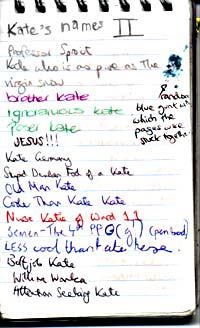 Kate's names II
Professor Sprout
Kate who is as pure as the
virgin snow
brother Kate
ignoramus Kate
poser Kate
& random
blue gunk with
which the
pages were
stuck together
JESUS!!!
Kate Germany
Stupid Drunken Fool of a Kate
Old Man Kate
Cooler Than Kate Kate
Nurse Katie of Ward 11
Semen-The 4th PPG(g') (pen bood)
LESS cool than take herge.
Buffjob Kate
Willima Wonka
Attention Seeking Kate